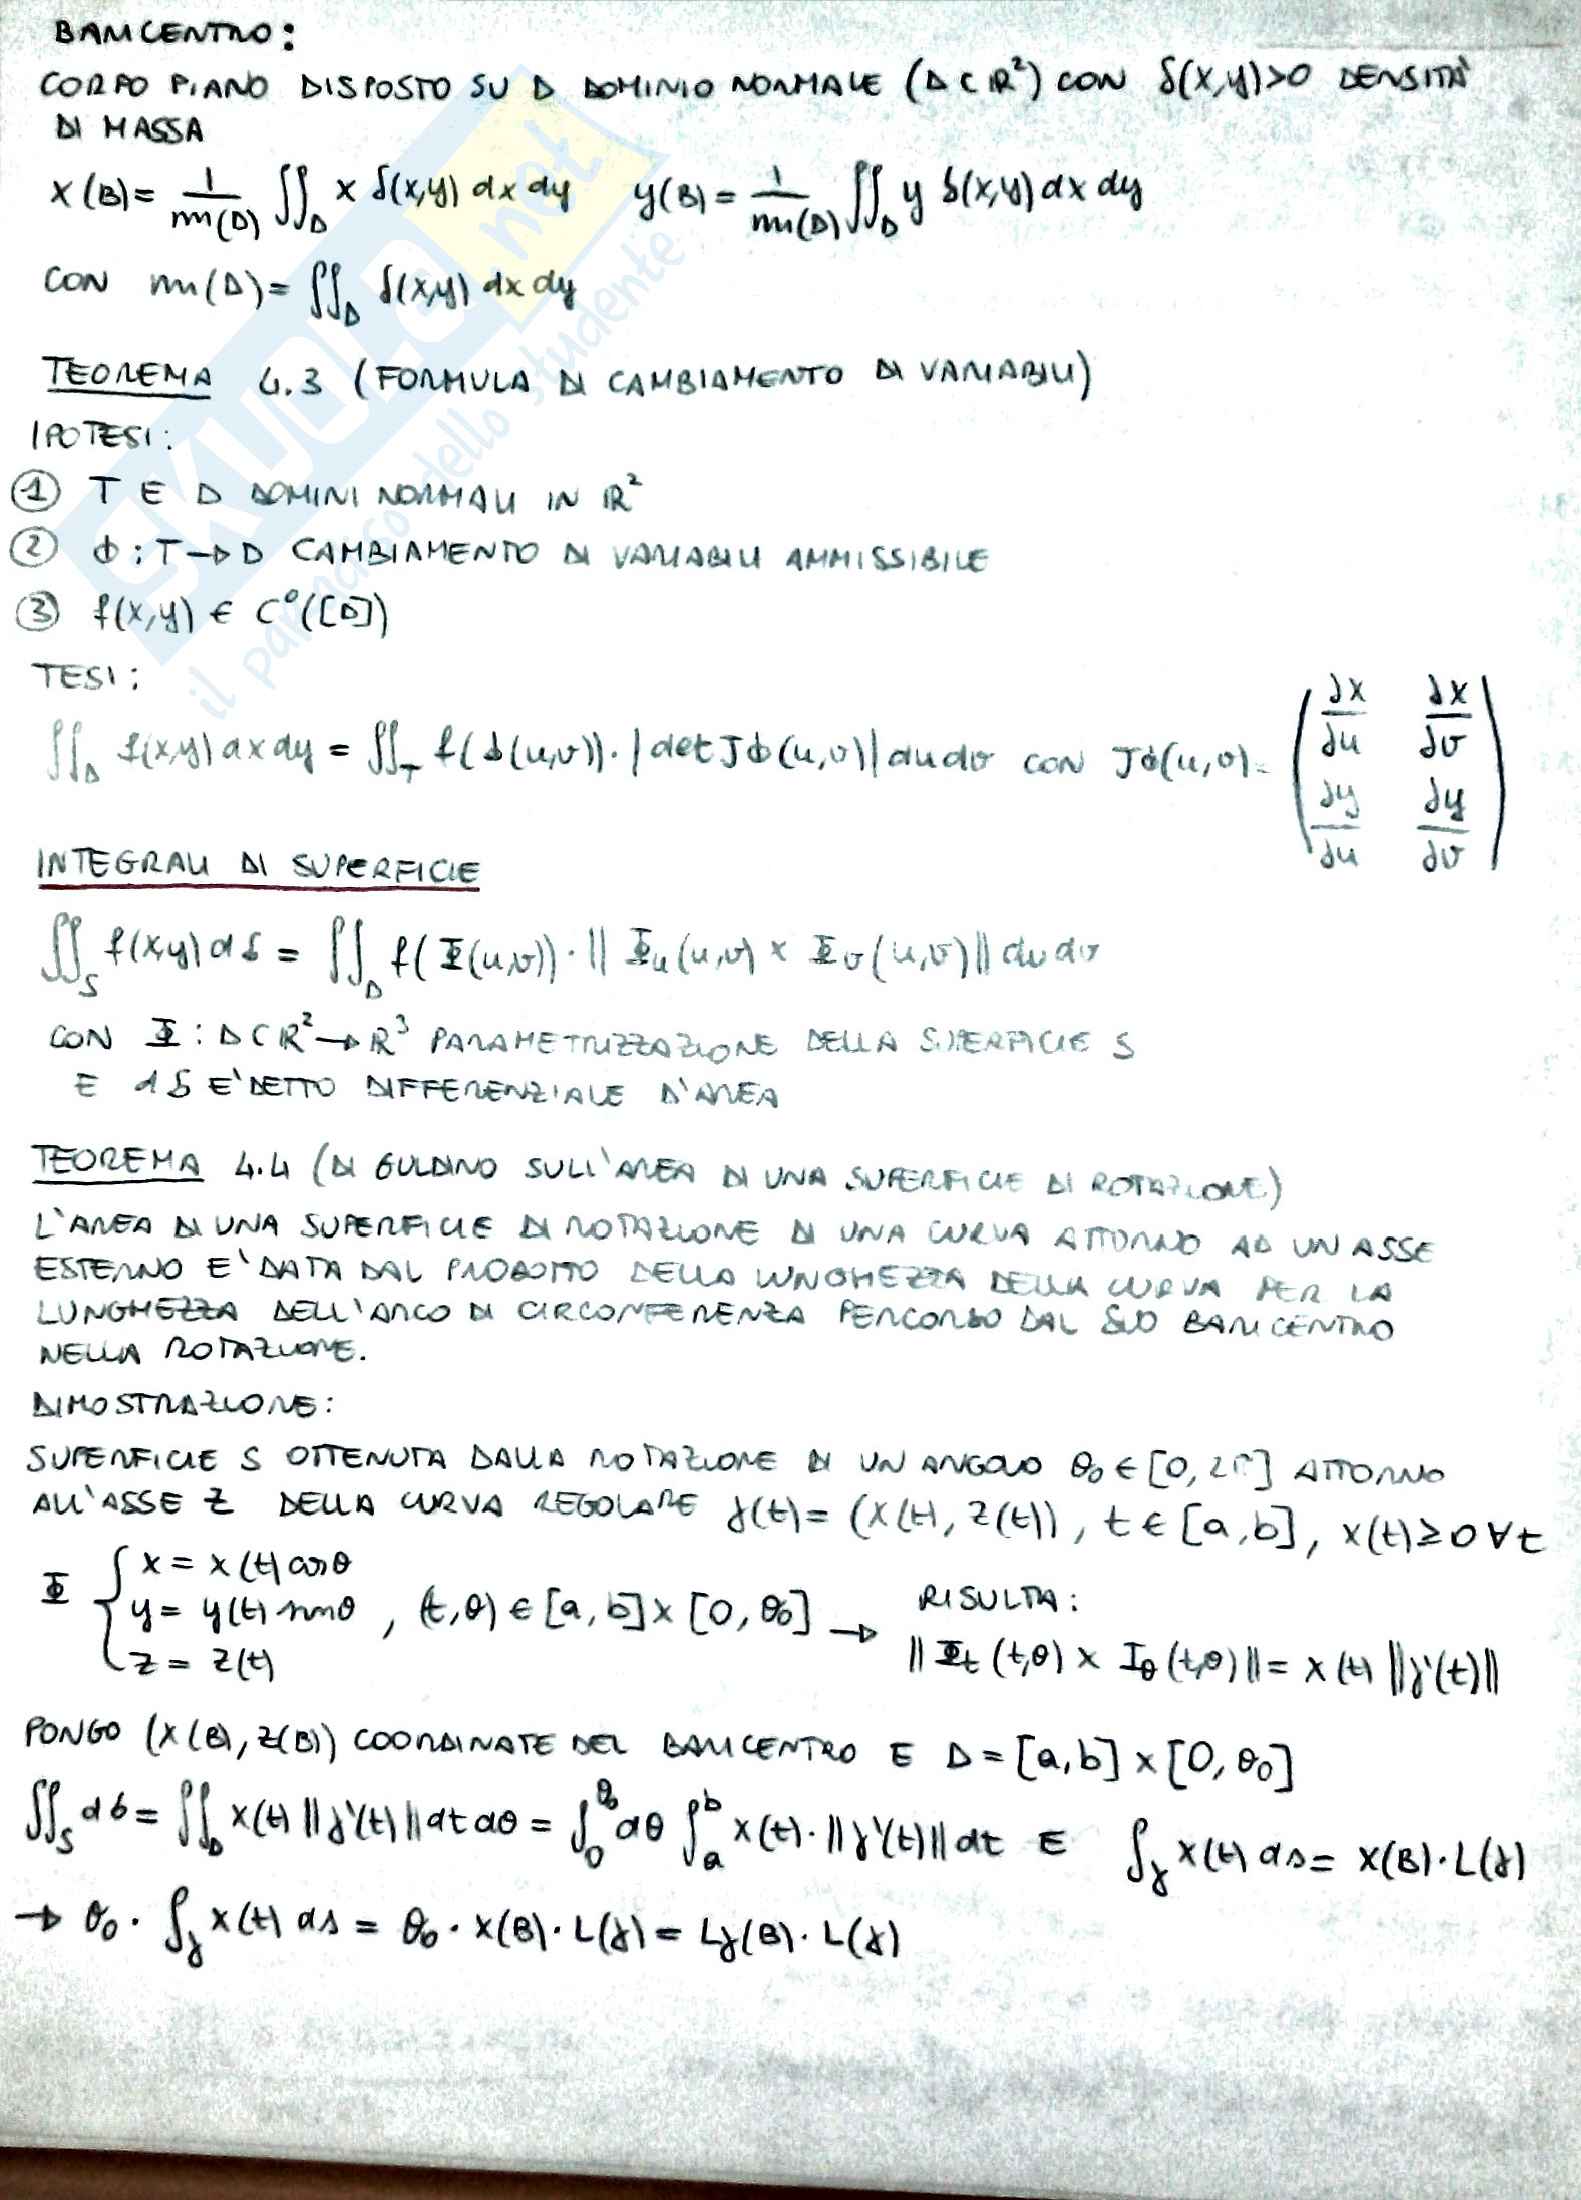 BARICENTRO:
CORPO PIANO DISPOSTO SU D DOMINIO NORMALE (D ⊂ ℝ²) CON δ(x,y)>0 DENSITÀ
DI MASSA
x(B) = 1/m(D) ∬_D x δ(x,y) dx dy    y(B) = 1/m(D) ∬_D y δ(x,y) dx dy
CON m(D) = ∬_D δ(x,y) dx dy
TEOREMA 4.3 (FORMULA DI CAMBIAMENTO DI VARIABILI)
IPOTESI:
① T E D DOMINI NORMALI IN ℝ²
② ϕ : T → D CAMBIAMENTO DI VARIABILI AMMISSIBILE
③ f(x,y) ∈ C⁰([D])
TESI:
∬_D f(x,y) dx dy = ∬_T f(ϕ(u,v)) · |det Jϕ(u,v)| du dv CON Jϕ(u,v) = (∂x/∂u ∂x/∂v ∂y/∂u ∂y/∂v)
INTEGRALI DI SUPERFICIE
∬_S f(x,y) dδ = ∬_D f(Φ(u,v)) · ‖Φu(u,v) × Φv(u,v)‖ du dv
CON Φ : D ⊂ ℝ² → ℝ³ PARAMETRIZZAZIONE DELLA SUPERFICIE S
E dδ E' DETTO DIFFERENZIALE D'AREA
TEOREMA 4.4 (DI GULDINO SULL'AREA DI UNA SUPERFICIE DI ROTAZIONE)
L'AREA DI UNA SUPERFICIE DI ROTAZIONE DI UNA CURVA ATTORNO AD UN ASSE
ESTERNO E' DATA DAL PRODOTTO DELLA LUNGHEZZA DELLA CURVA PER LA
LUNGHEZZA DELL'ARCO DI CIRCONFERENZA PERCORSO DAL SUO BARICENTRO
NELLA ROTAZIONE.
DIMOSTRAZIONE:
SUPERFICIE S OTTENUTA DALLA ROTAZIONE DI UN ANGOLO θ₀ ∈ [0, 2π] ATTORNO
ALL'ASSE Z DELLA CURVA REGOLARE γ(t) = (x(t), z(t)), t ∈ [a,b], x(t) ≥ 0 ∀t
Φ { x = x(t) cosθ
y = y(t) sinθ , (t,θ) ∈ [a,b] × [0, θ₀] → RISULTA:
z = z(t)
‖Φt(t,θ) × Iθ(t,θ)‖ = x(t) ‖γ'(t)‖
PONGO (x(B), z(B)) COORDINATE DEL BARICENTRO E D = [a,b] × [0, θ₀]
∬_S dδ = ∬_D x(t) ‖γ'(t)‖ dt dθ = ∫_0^θ₀ dθ ∫_a^b x(t) · ‖γ'(t)‖ dt E ∫_γ x(t) ds = x(B) · L(γ)
→ θ₀ · ∫_γ x(t) ds = θ₀ · x(B) · L(γ) = Lγ(B) · L(γ)
SKUOLA.net
il paradiso dello studente